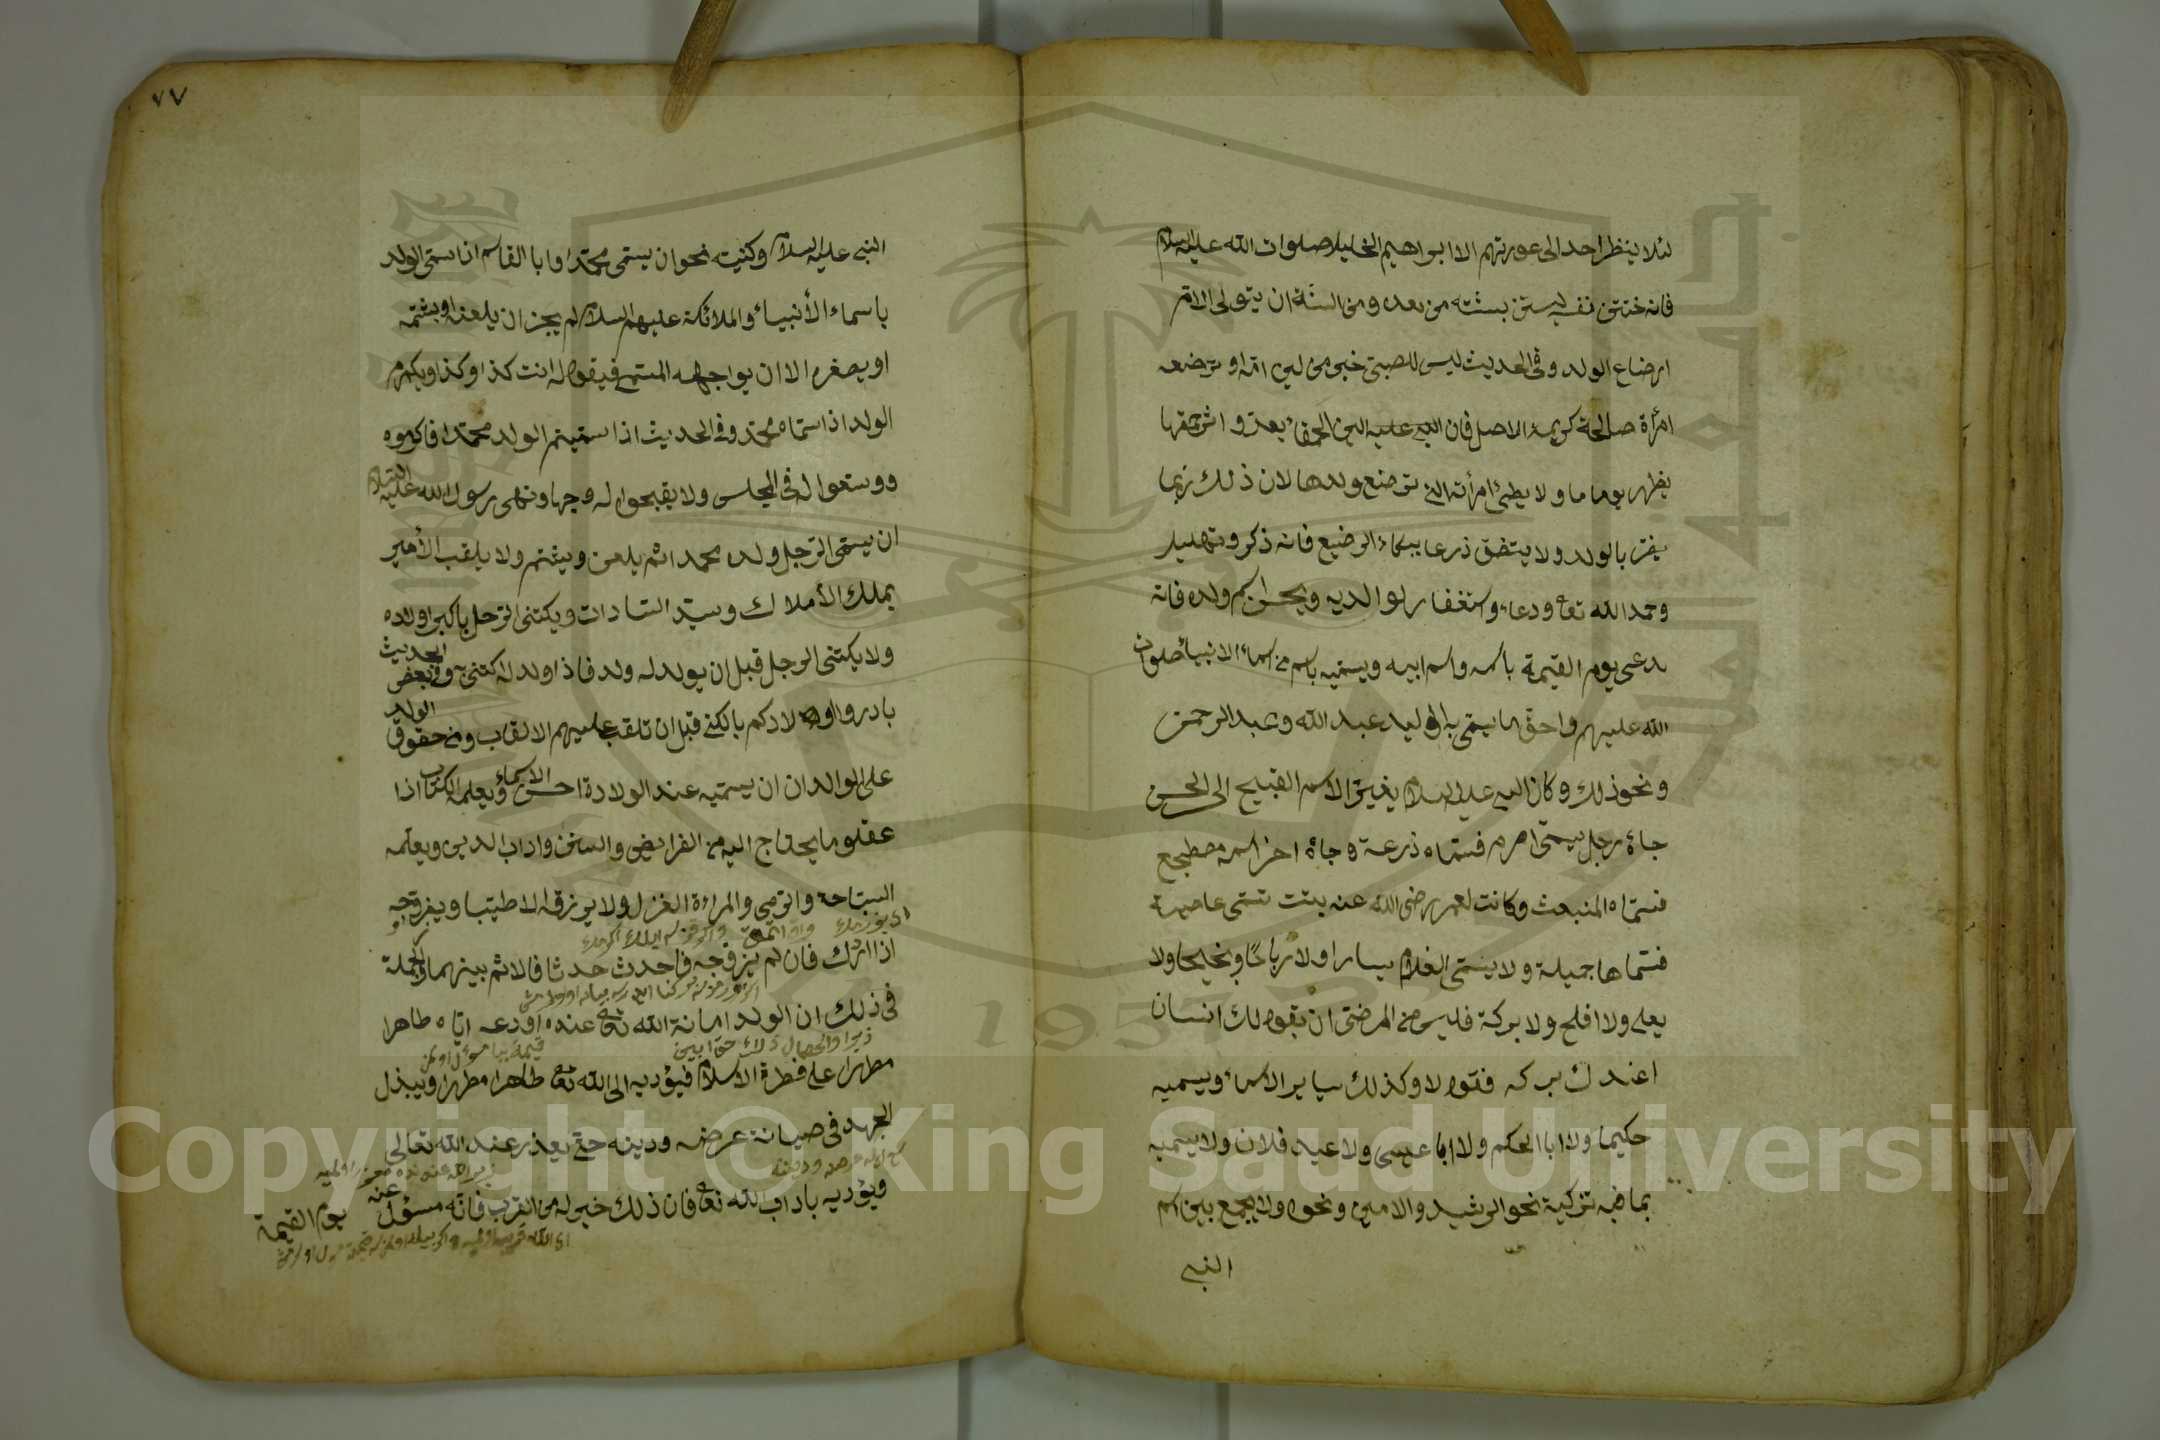 لئلا ينظر احد الى عورتهم الا ابراهيم الخليل صلوات الله عليه السلام
فانه ختن نفسه ليستن بسنته من بعده ومن السنة ان يتولى الام
ارضاع الولد وفى الحديث ليس للصبى خير من لبن امه او ترضعه
امرأة صالحة كريمة الاصل فان النبى عليه اللبن الحمقاء يعدى و اثر حمقها
يظهر يوما ما ولا يطئ امرأته التى ترضع ولدها لان ذلك ربما
يضر بالولد ولا يتضق ذرعا ببكاء الرضيع فانه ذكر وتهليل
وحمد الله تعالى ودعاء واستغفار لوالديه ويحسن اسم ولده فانه
يدعى يوم القيمة باسمه واسم ابيه ويسميه باسم من اسماء الانبياء صلوات
الله عليهم واحق ما يسمى به الوليد عبد الله وعبد الرحمن
ونحو ذلك وكان النبى عليه السلام يغير الاسم القبيح الى الحسن
جاء رجل يسمى اصرم فسماه ذرعة وجاء اخر اسمه مضطجع
فسماه المنبعث وكانت لعمر رضى الله عنه بنت تسمى عاصية
فسماها جميلة ولا يسمى الغلام يسارا ولا رباحا ونجيحا ولا
يعلى ولا افلح ولا بركة فليس من المرضى ان يقول لك انسان
اعندك بركه فتقول لا وكذلك ساير الاسماء ويسميه
حكيما ولا ابا الحكم ولا ابا عيسى ولا عبد فلان ولا يسميه
بما فيه تزكية نحو الرشيد والامين ونحوه ولا يجمع بين اسم
النبى
٧٧
النبى عليه السلام وكنيته نحو ان يسمى محمدا وابا القاسم اذا سمى الولد
باسماء الأنبياء والملائكة عليهم السلام لم يجز ان يلعنه او يشتمه
او يصغره الا ان يواجهه المسمى فيقول له انت كذا وكذا ويكرم
الولد اذا سماه محمد وفى الحديث اذا سميتم الولد محمدا فاكرموه
ووسعوا له فى المجلس ولا يقبحوا له وجها ونهى رسول الله عليه السلام
ان يسمى الرجل ولده محمدا ثم يلعن ويشتم ولا يلقب الأمير
بملك الأملاك وسيد السادات ويكتنى الرجل باكبر اولاده
ولا يكتنى الرجل قبل ان يولد له ولد فاذا ولد له اكتنى به وفى بعض الحديث
بادروا اولادكم بالكنى قبل ان تلقب عليهم الالقاب ومن حقوق الولد
على الوالدان ان يسميه عند الولادة احسن الاسماء ويعلمه الكتاب اذا
عقل وما يحتاج اليه من الفرايض والسنن واداب الدين ويعلمه
السباحة والرمى والمراءة الغزل ولا يرزقه الا طيبا ويزوجه
اذا ادرك فان لم يزوجه فاحدث حدثا فالاثم بينهما والجملة
فى ذلك ان الولد امانة الله تعالى عنده اودعه اياه طاهرا
مطهرا على فطرة الاسلام فيؤديه الى الله تعالى طاهرا مطهرا ويبذل
الجهد فى صيانة عرضه ودينه حتى يعذر عند الله تعالى
ويؤديه باداب الله تعالى فان ذلك خير له من القرب فانه مسؤل عنه يوم القيمة
Copyright © King Saud University
1957